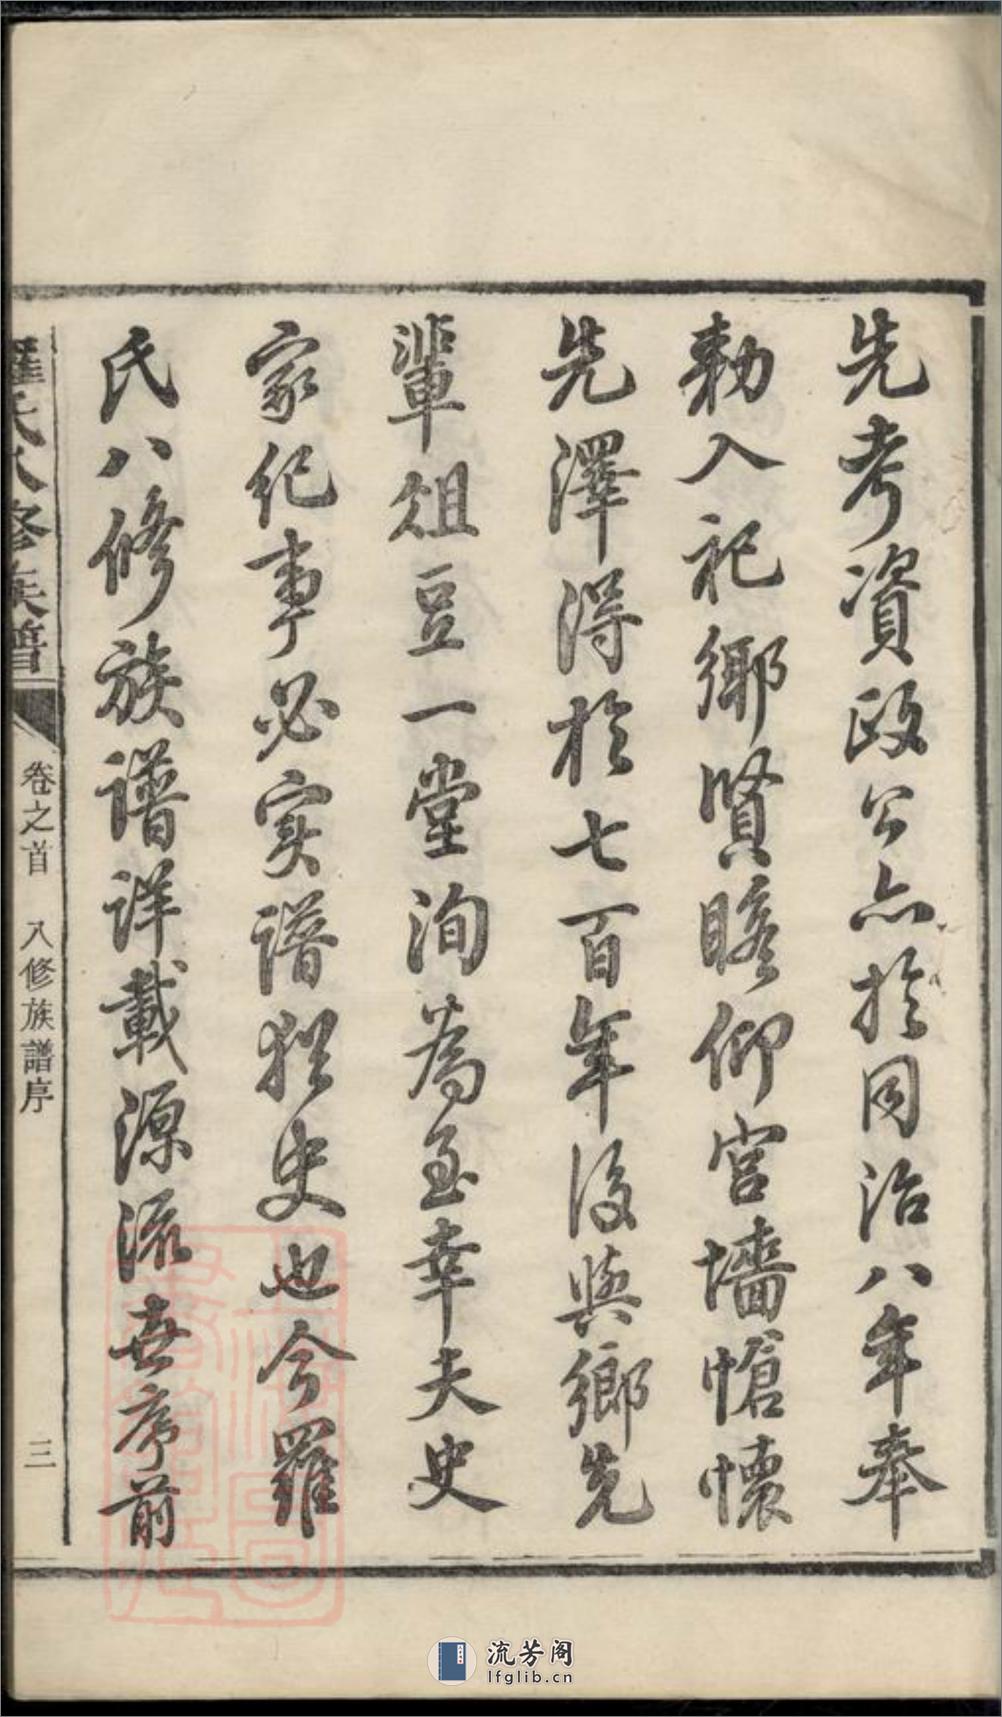 先考資政公亦於同治八年奉
勅入祀鄉賢瞻仰宮墻愴懷
先澤得於七百年後與鄉先
輩俎豆一堂洵為至幸夫史
家紀事必实譜猶史也今羅
氏八修族譜詳載源流世序前
羅氏八修族譜
卷之首 八修族譜序
三
流芳阁
lfglib.cn